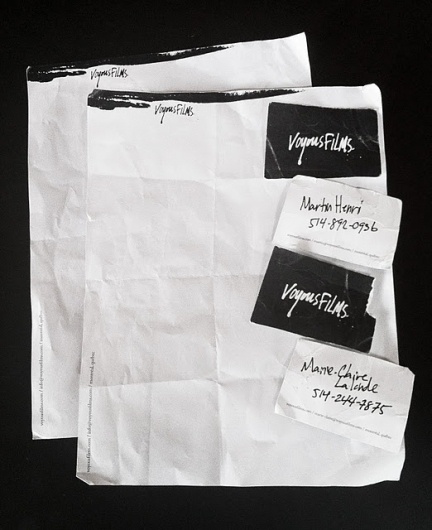 VoyousFILMS.
VoyousFILMS.
VoyousFILMS.
Martin Henri
514-892-0936
VoyousFILMS.
Marie-Claire
Lalonde
514-244-7875